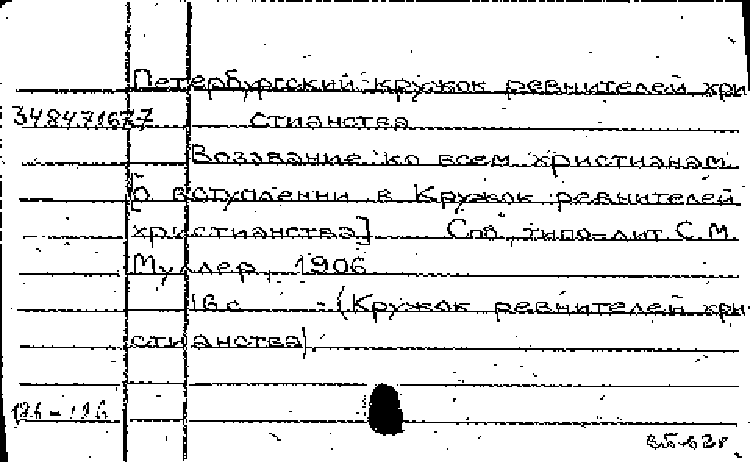 Петербургский кружок ревнителей хри-
34847.1677 стианства
Воззвание ко всем христианам
[о вступлении в Кружок ревнителей
христианства] Спб, типо-лит. С.М.
Муллер, 1906
18 с. - (Кружок ревнителей хри-
стианства).